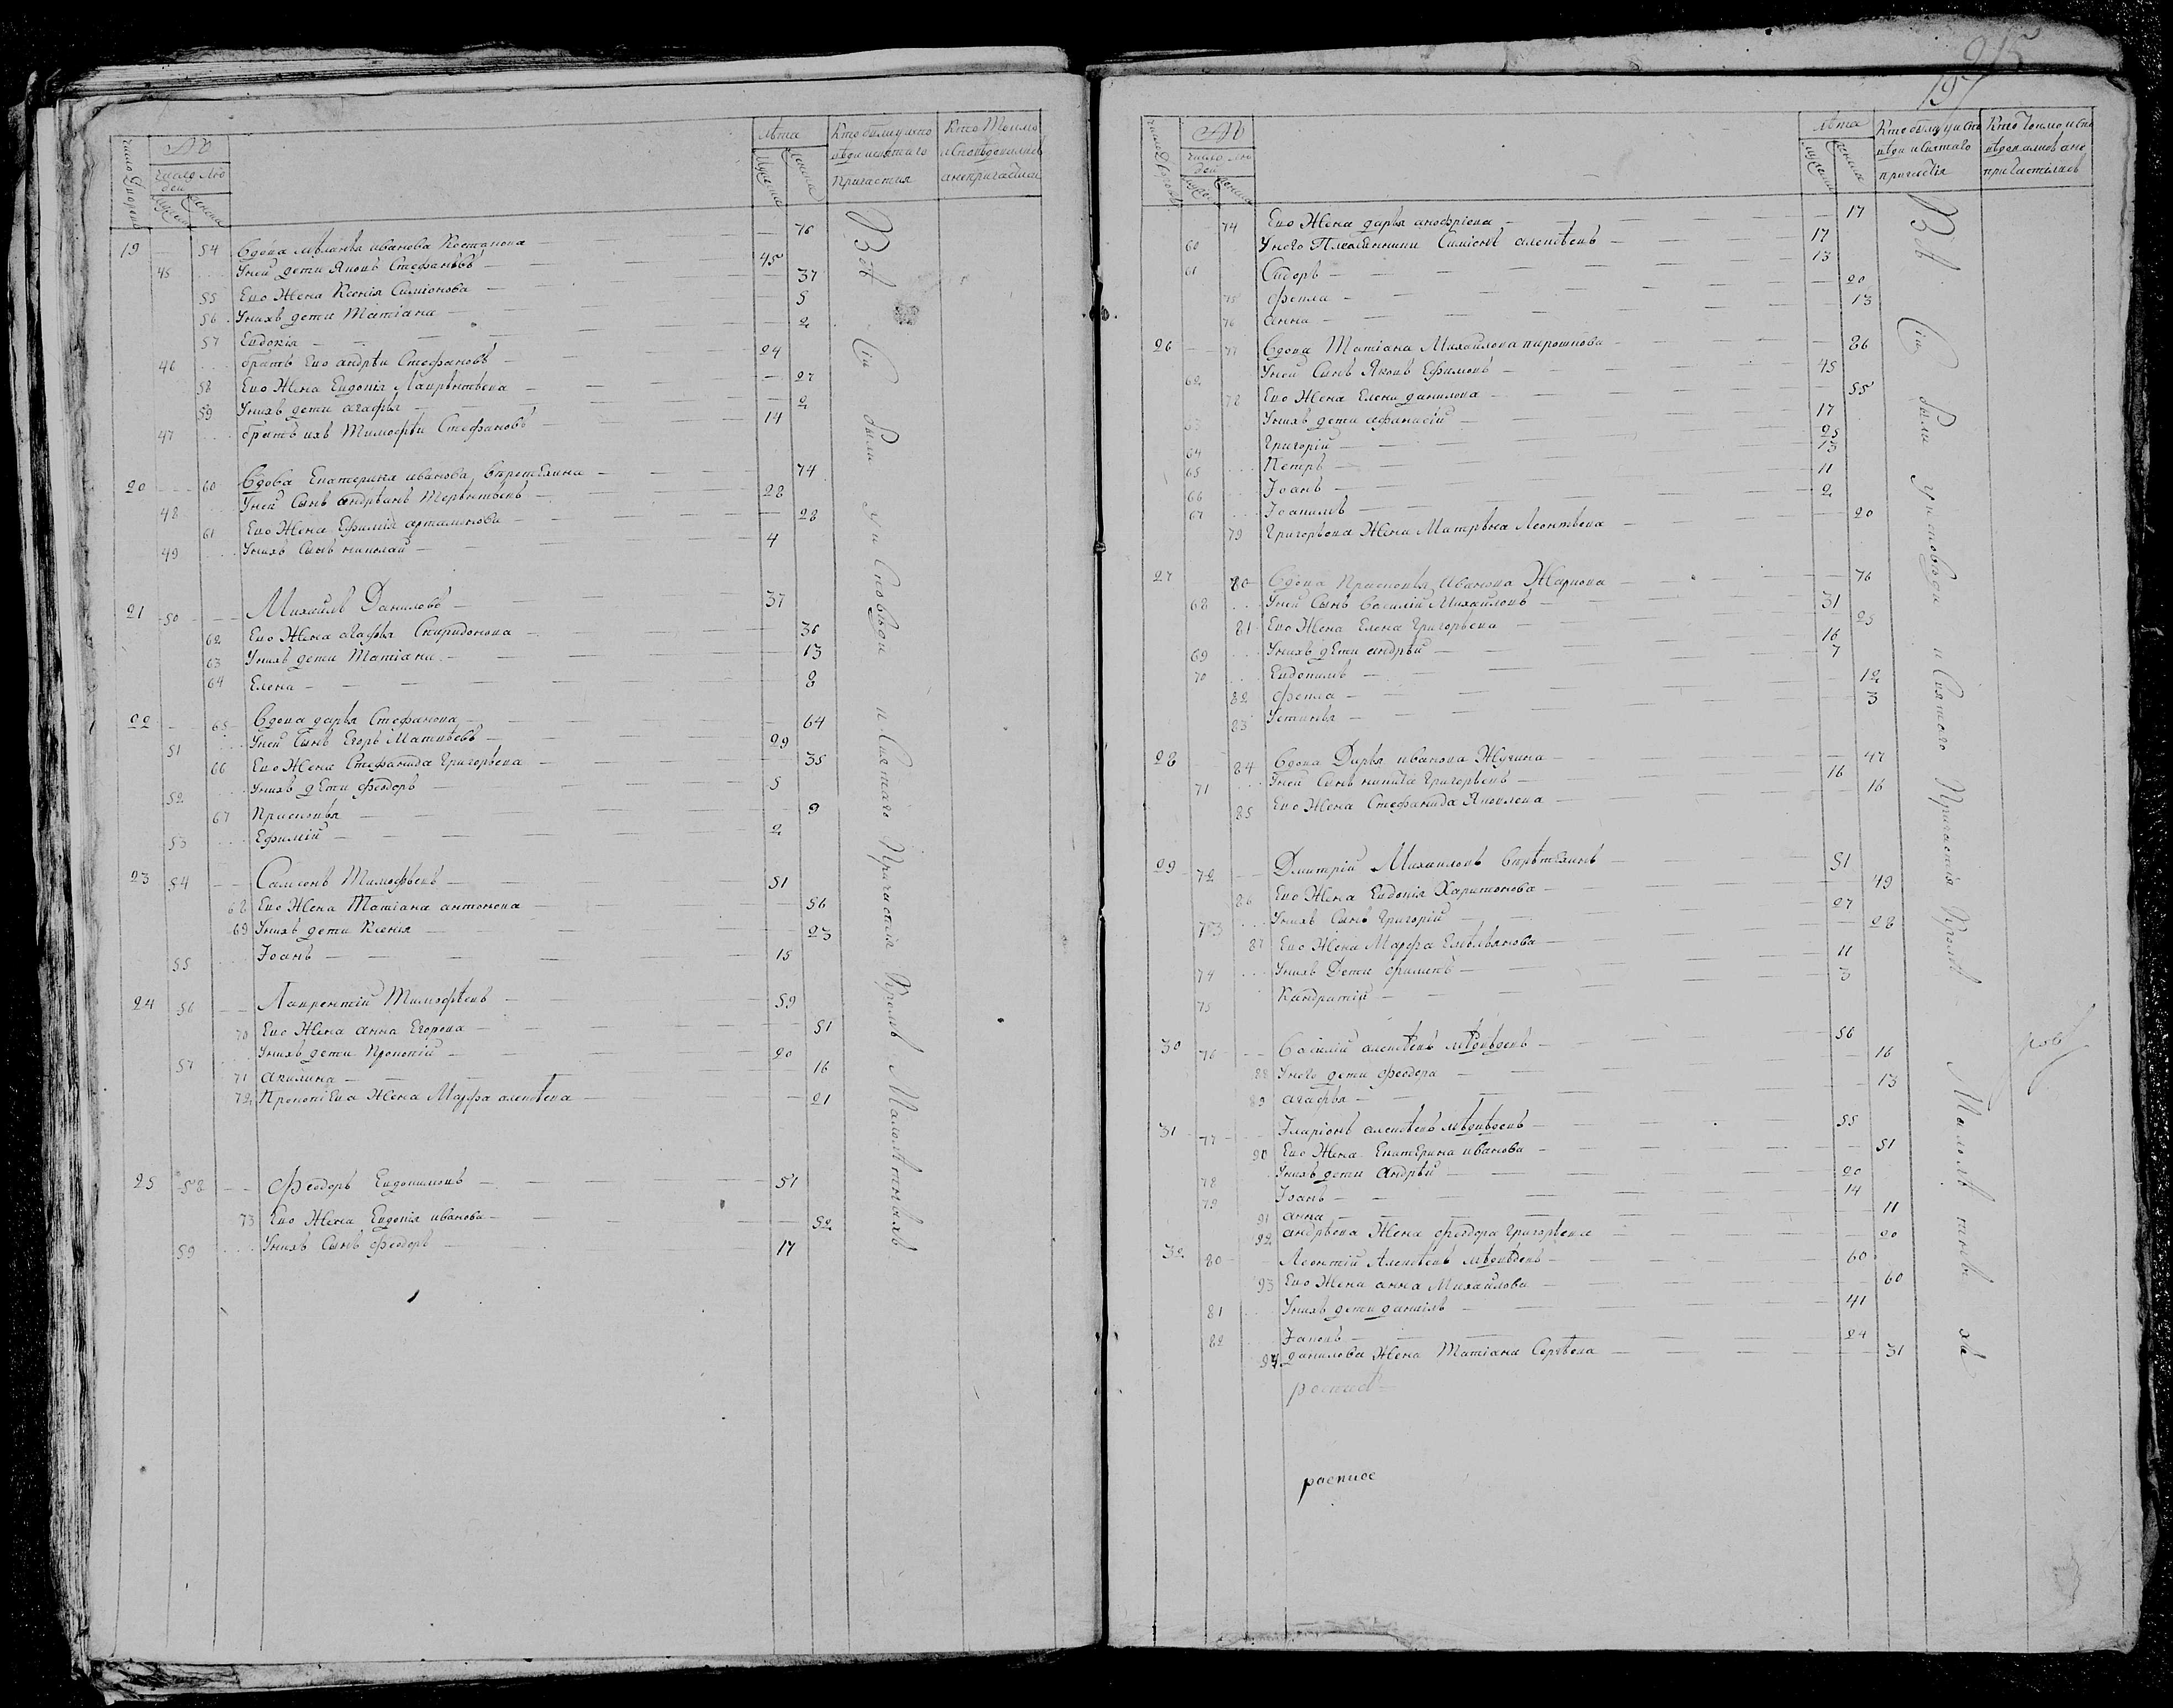 число дворовъ
№
число людей
мужеска
женска
Лѣта
мужеска
женска
Кто были у испо
вѣди и святаго
причастия
Кто токмо
исповѣдовались
а не причастил
19 54 Вдова Меланья иванова Костанова 76
45 Уней дети Яковъ Стефановъ 45
55 Ево Жена Ксенія Симіонова 37
56 Унихъ дети Татіана 5
57 Евдокія 2
46 братъ ево андрѣй Стефановъ 24
58 Ево Жена Евдокія Лаврѣнтьева 27
59 Унихъ дети агафья 2
47 братъ ихъ Тимофѣй Стефановъ 14
20 60 Вдова Екатерина иванова 74
48 Уней Сынъ андрѣянъ Терѣнтьевъ 28
61 Ево Жена Ефимія артамонова 28
49 Унихъ Сынъ николай 4
21 50 Михайлъ Даниловъ 37
62 Ево Жена агафья Спиридонова 36
63 Унихъ дети Татіана 13
64 Елена 8
22 65 Вдова дарья Стефанова 64
51 Уней Сынъ Егоръ Матвѣевъ 29
66 Ево Жена Стефанида Григорьева 35
52 Унихъ дети феодоръ 5
67 Прасковья 9
53 Ефимій 2
23 54 Самсонъ Тимофѣевъ 51
68 Ево Жена Татіана антонова 56
69 Унихъ дети Ксенія 23
55 Іоанъ 15
24 56 Лаврентій Тимофѣевъ 59
70 Ево Жена анна Егорова 51
57 Унихъ дети Прокопій 20
71 акилина 16
72 Прокопіева Жена Марфа алексѣева 21
25 58 Феодоръ Евдокимовъ 51
73 Ево Жена Евдокія иванова 52
59 Унихъ Сынъ феодоръ 17
Всѣ Сіи были у исповѣди и Святаго Причастія Кромѣ Малолѣтныхъ
215
197
число дворовъ
№
число людей
мужеска
женска
Лѣта
мужеска
женска
Кто были у испо
вѣди и святаго
причастія
Кто токмо испо
вѣдовались а не
причастились
74 Ево Жена дарья анофріева 17
60 Унего Племянники Симіонъ алексѣевъ 17
61 Сидоръ 13
75 фекла 20
76 анна 13
26 77 Вдова Татіана Михайлова пирошкова 86
62 Уней Сынъ Яковъ Ефимовъ 45
78 Ево Жена Елена данилова 55
63 Унихъ дети афанасій 17
64 Григорій 25
65 Петръ 13
66 Іоанъ 11
67 Іоакимъ 2
79 Григорьева Жена Матрѣна Леонтьева 20
27 80 Вдова Прасковья Иванова Жаркова 76
68 Уней Сынъ Василій Михайловъ 31
81 Ево Жена Елена Григорьева 25
69 Унихъ дети андрѣй 16
70 Евдокимъ 7
82 фекла 12
83 Устинья 3
28 84 Вдова Дарья иванова Жукина 47
71 Уней Сынъ никита Григорьевъ 16
85 Ево Жена Стефанида Яковлева 16
29 72 Дмитрій Михаиловъ 51
86 Ево Жена Евдокія Харитонова 49
73 Унихъ Сынъ Григорій 27
87 Ево Жена Марфа Емѣльянова 28
74 Унихъ Дети филипъ 11
75 Кандратій 3
30 76 Василій алексѣевъ мѣдвѣдевъ 56
88 Унего дети феодора 16
89 агафья 13
31 77 Іларіонъ алексѣевъ мѣдвѣдевъ 55
90 Ево Жена Екатерина иванова 51
78 Унихъ дети Андрѣй 20
79 Іоанъ 14
91 анна 11
92 андрѣева Жена феодора Григорьева 20
32 80 Леонтій Алексѣевъ мѣдвѣдевъ 60
93 Ево Жена анна Михайлова 60
81 Унихъ дети данилъ 41
82 Іаковъ 24
94 данилова Жена Татіана Сергѣева 31
роспис
роспис
Всѣ Сіи были у исповѣди и Святаго Причастія Кромѣ